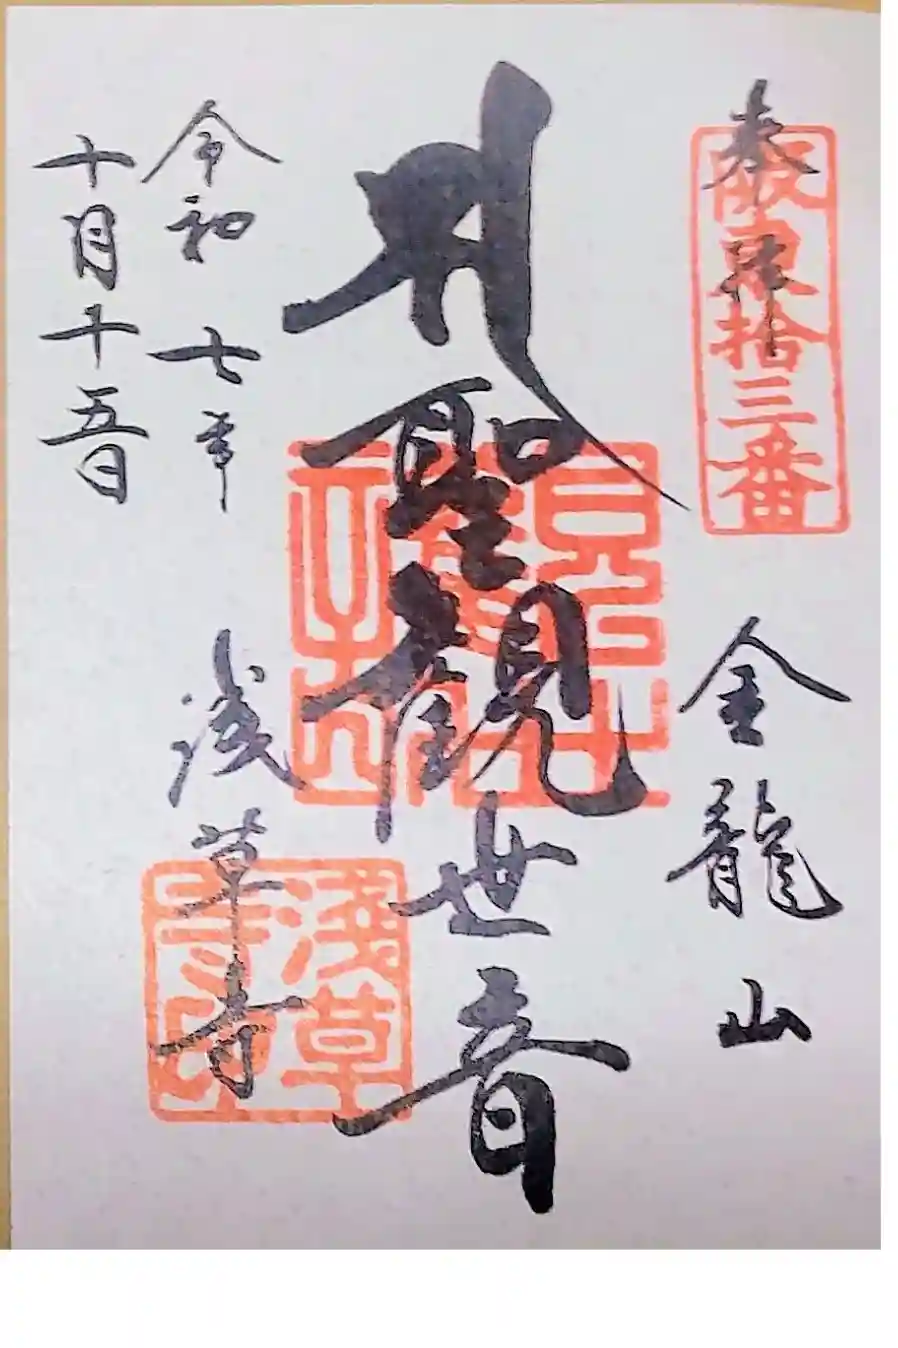 奉拝
坂東拾三番
金龍山
聖観世音
浅草寺
淺草寺
令和七年
十月十五日